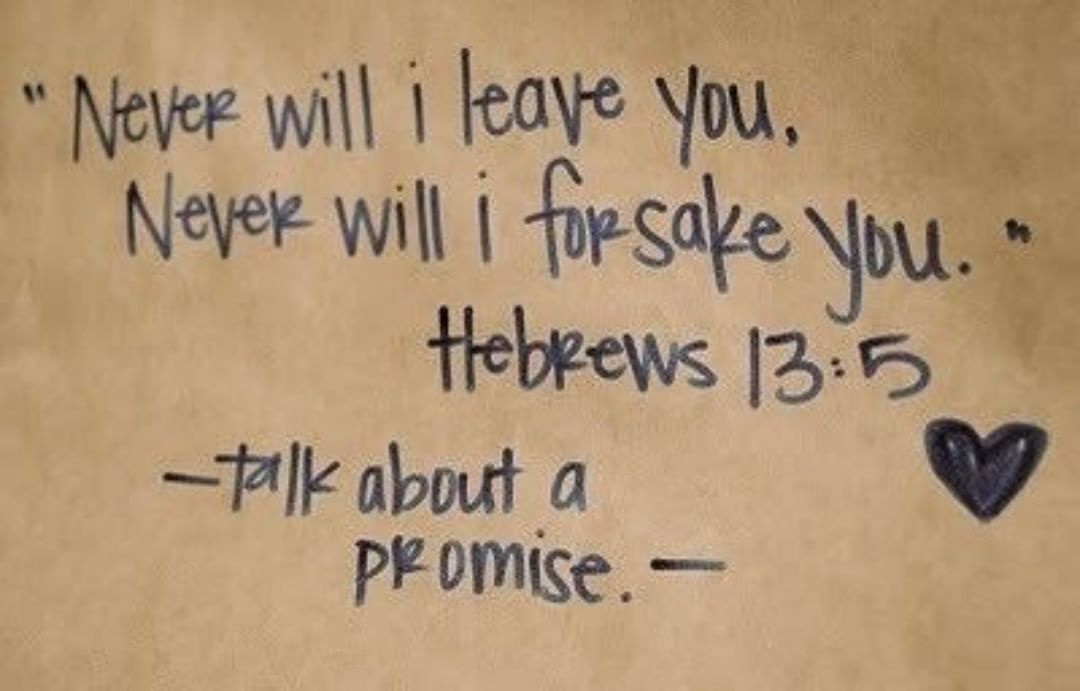 "Never will i leave you,
Never will i forsake you."
Hebrews 13:5
-talk about a
promise. —